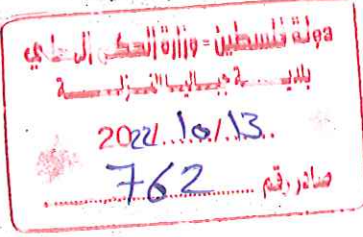 دولة فلسطين - وزارة الحكم المحلي
بلديـــة جباليا النـزلـــة
2022/10/13
صادر رقم 762